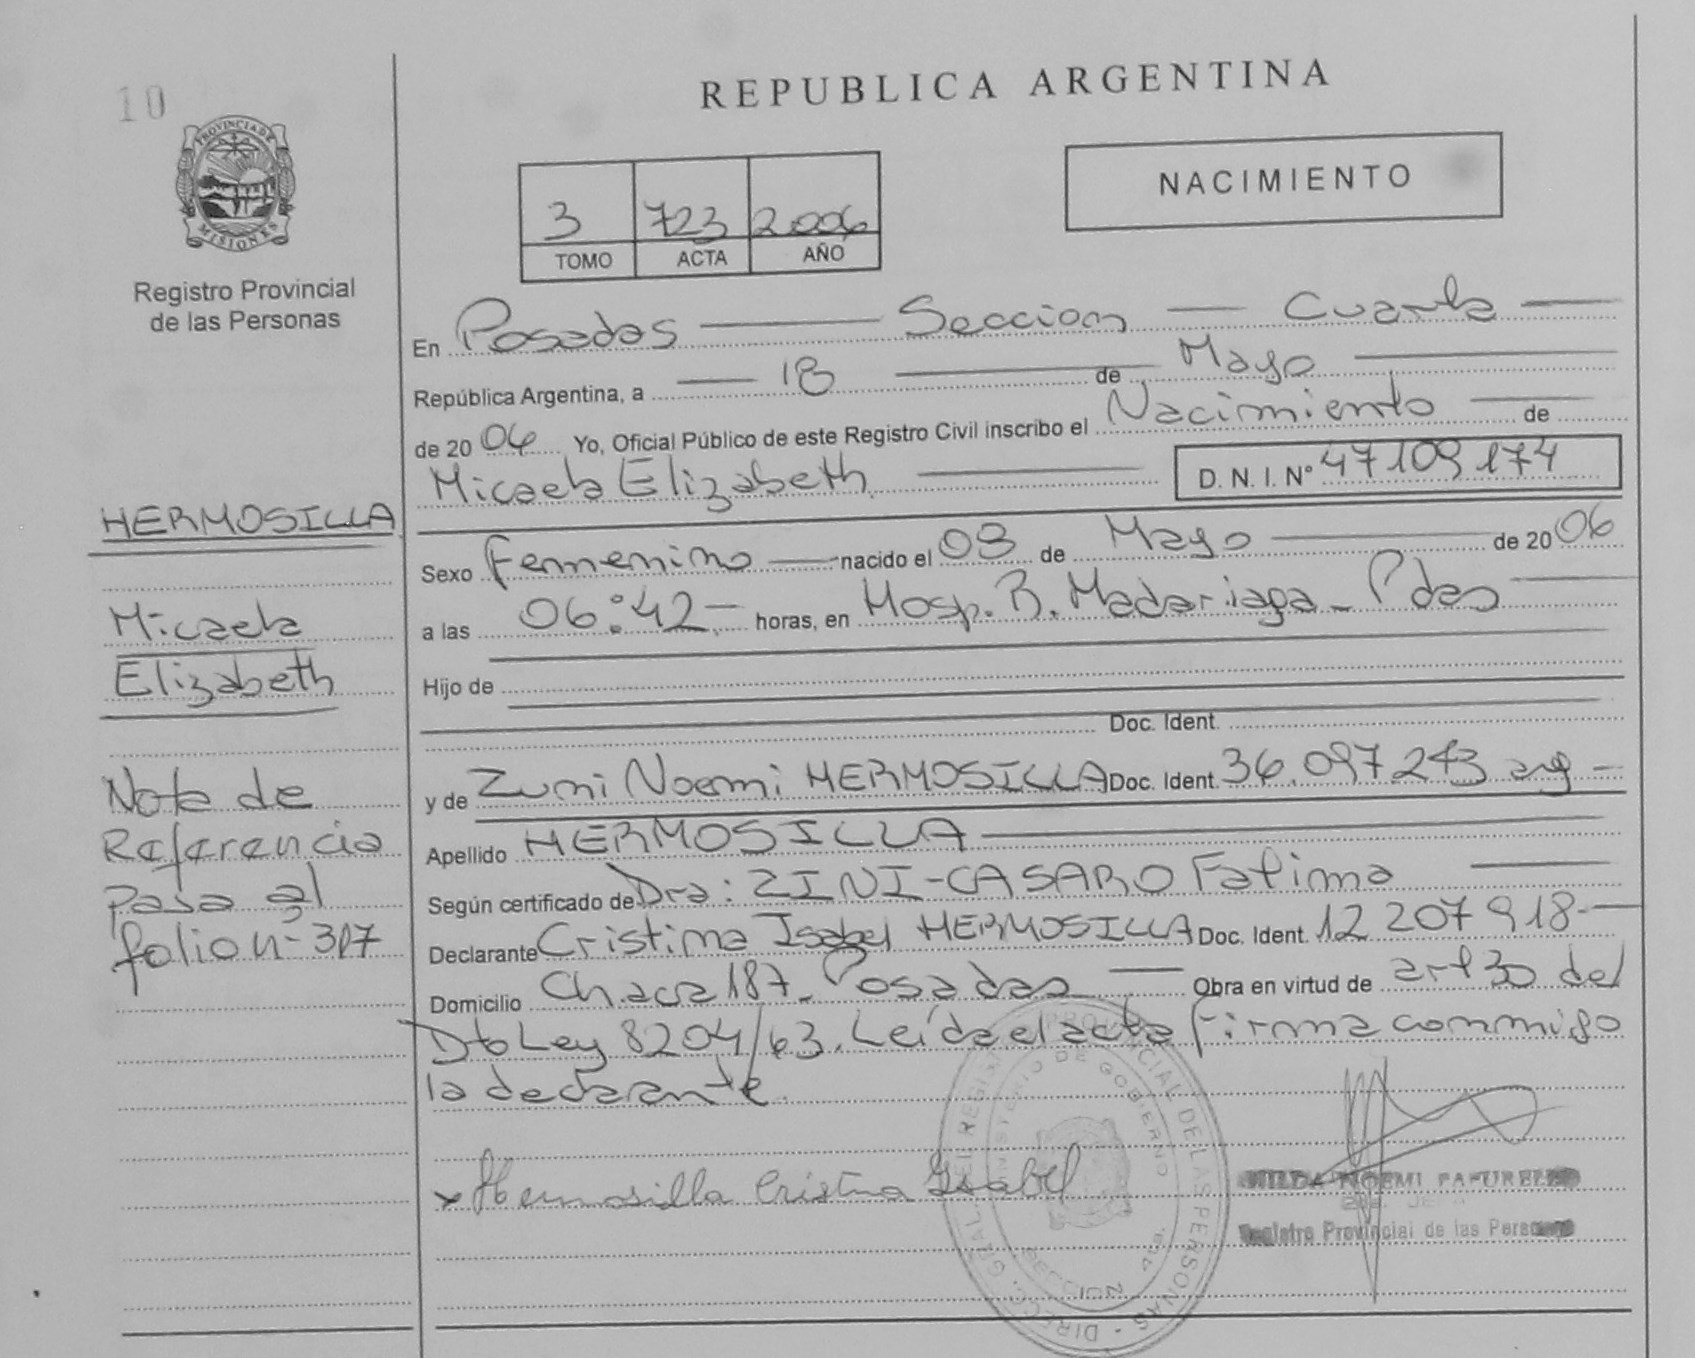 10
REPUBLICA ARGENTINA
PROVINCIA DE
MISIONES
Registro Provincial
de las Personas
3 723 2006
TOMO ACTA AÑO
NACIMIENTO
En Posadas Seccion Cuarta
República Argentina, a 18 de Mayo
de 2006 Yo, Oficial Público de este Registro Civil inscribo el Nacimiento de
Micaela Elizabeth D. N. I. Nº 47109174
Sexo Femenino nacido el 08 de Mayo de 2006
a las 06:42 horas, en Hosp. R. Madariaga - Pdas
Hijo de
Doc. Ident.
y de Zuni Noemi HERMOSILLA Doc. Ident. 36.097243 arg
Apellido HERMOSILLA
Según certificado de Dra: ZINI-CASARO Fatima
Declarante Cristina Isabel HERMOSILLA Doc. Ident. 12 207 918
Domicilio Chacra 187. Posadas Obra en virtud de art 30 del
Dto Ley 8204/63. Leída el acta firma conmigo
la declarante.
x Hermosilla Cristina Isabel
NOEMI
Registro Provincial de las Personas
HERMOSILLA
Micaela
Elizabeth
Nota de
Referencia
pasa al
folio nº 317